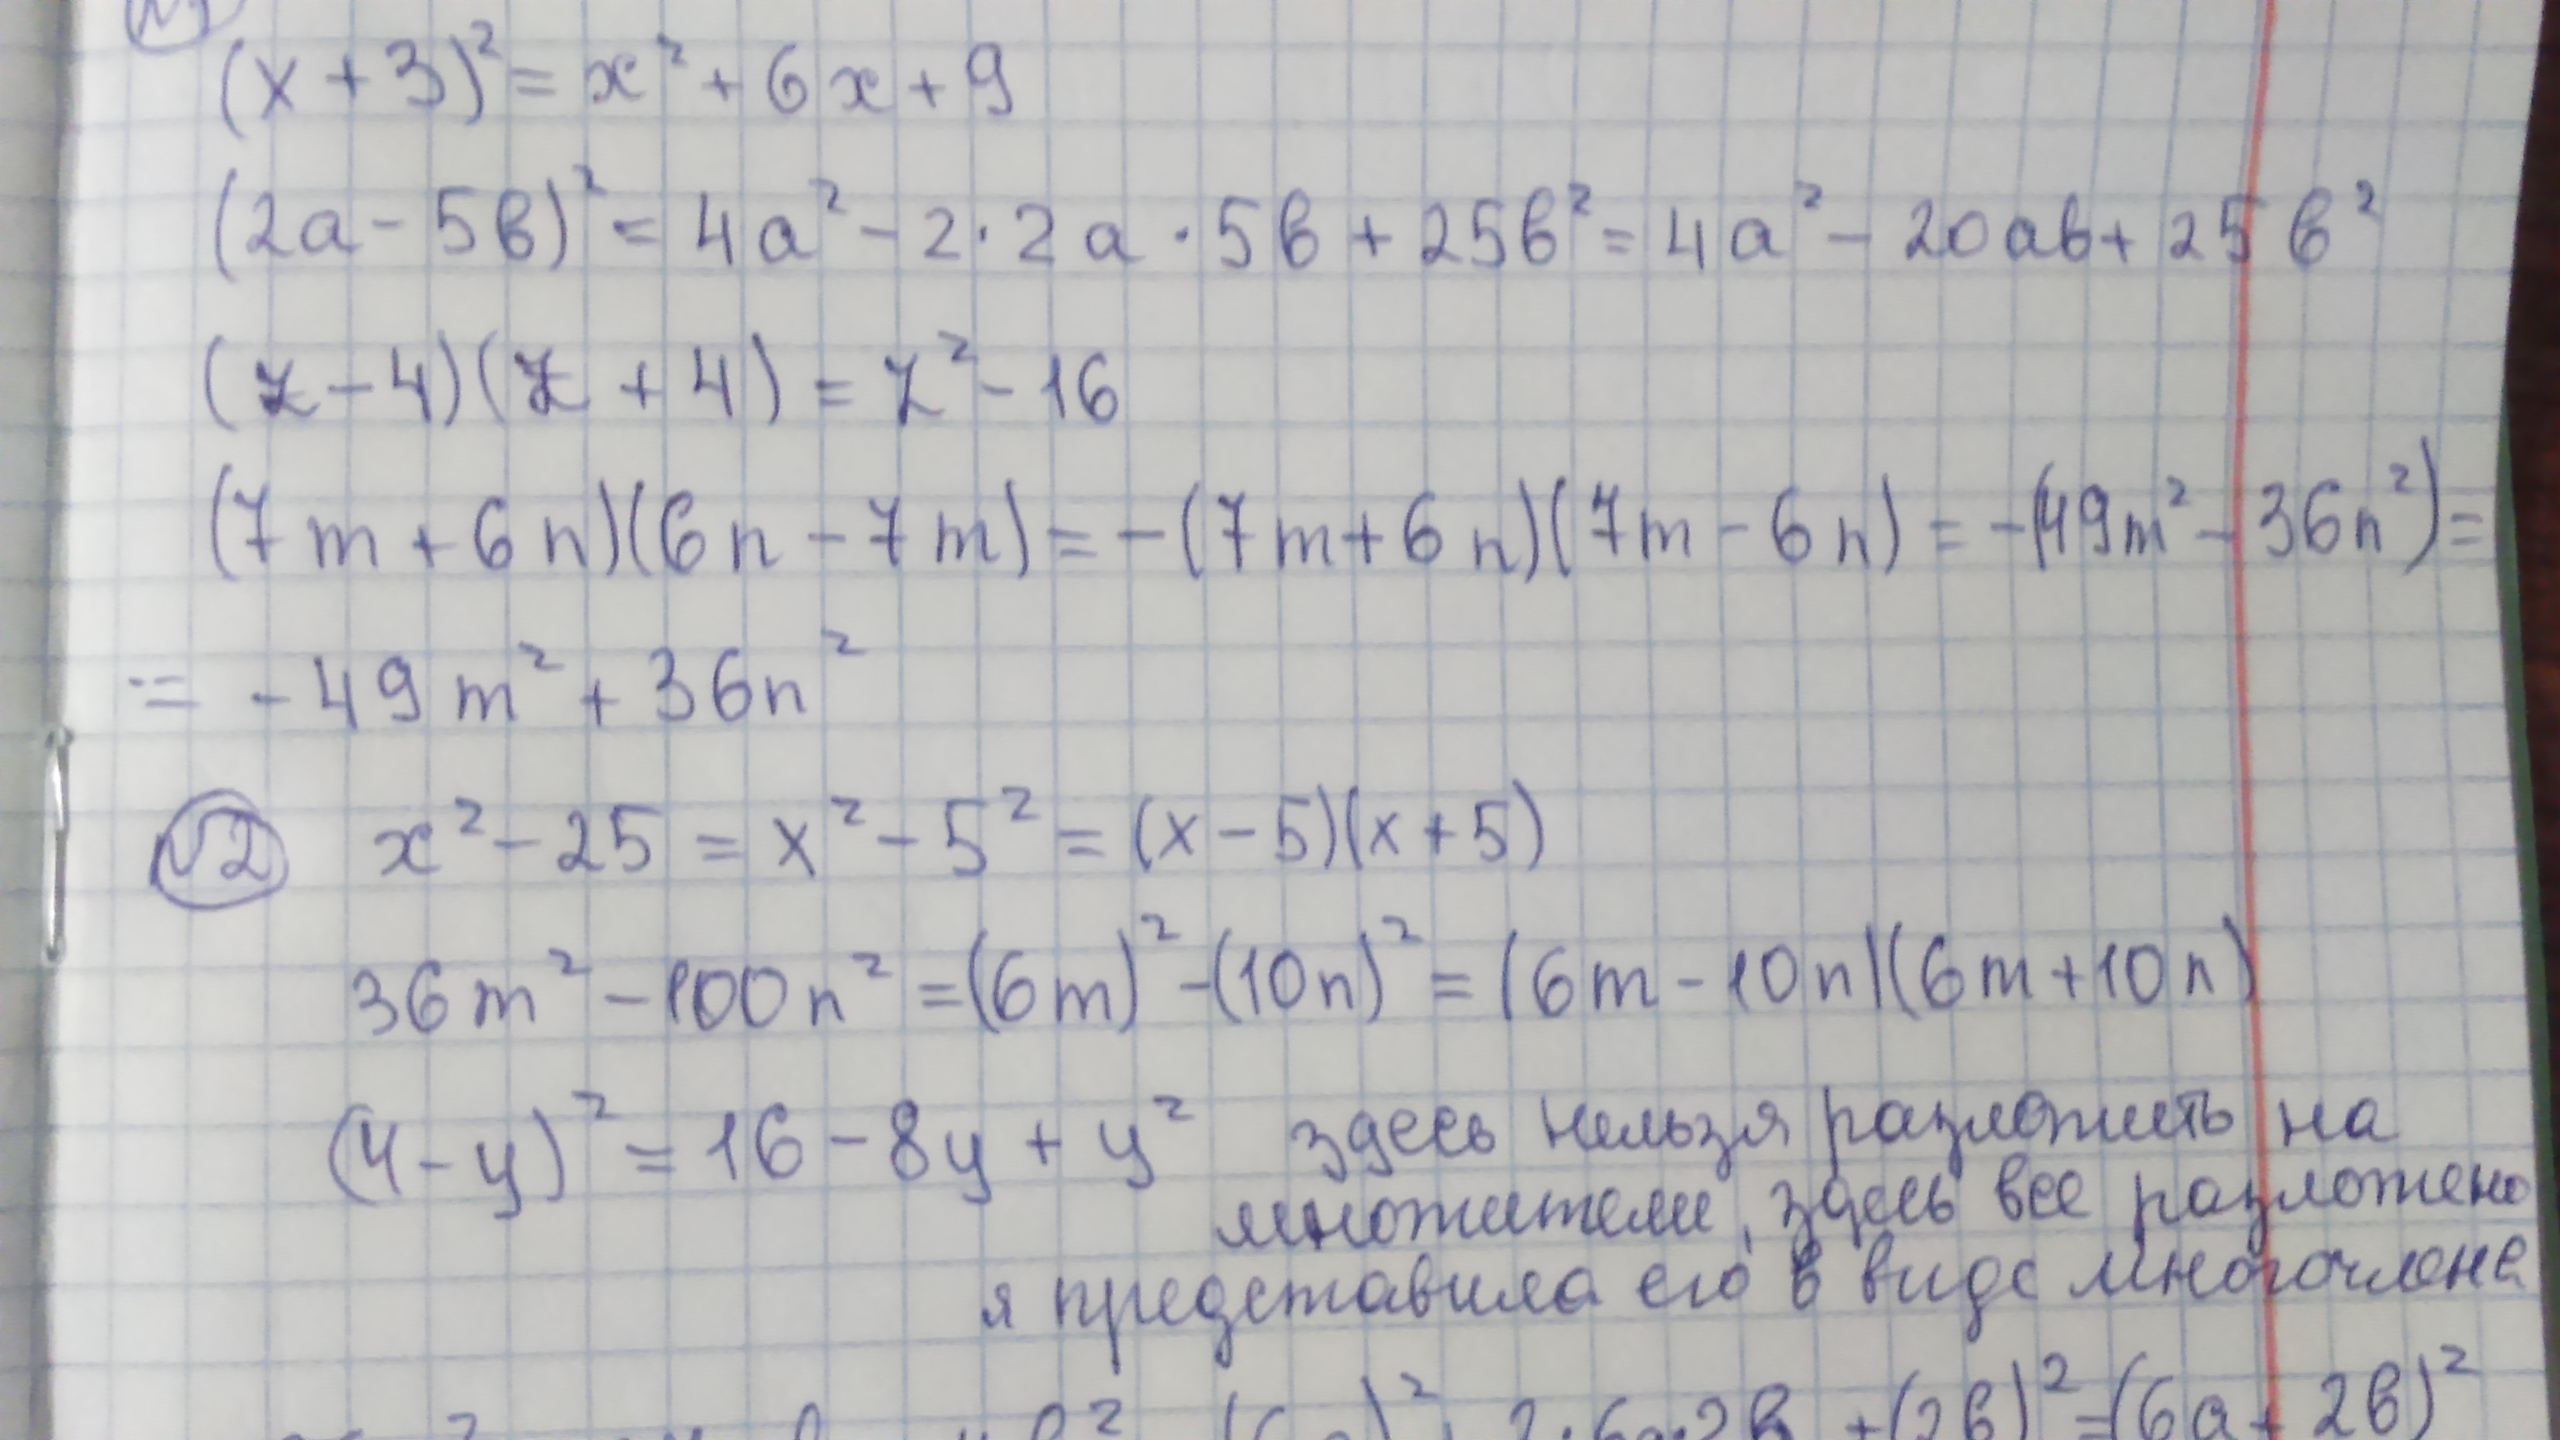 (x + 3)² = x² + 6x + 9
(2a - 5в)² = 4a² - 2·2a·5в + 25в² = 4a² - 20aв + 25в²
(z - 4)(z + 4) = z² - 16
(7m + 6n)(6n - 7m) = -(7m + 6n)(7m - 6n) = -(49m² - 36n²) =
= -49m² + 36n²
√2 x² - 25 = x² - 5² = (x - 5)(x + 5)
36m² - 100n² = (6m)² - (10n)² = (6m - 10n)(6m + 10n)
(4 - y)² = 16 - 8y + y² здесь нельзя разложить на
множители, здесь все разложено
я представила его в виде многочлена
2·6a·2в + (2в)² = (6a + 2в)²